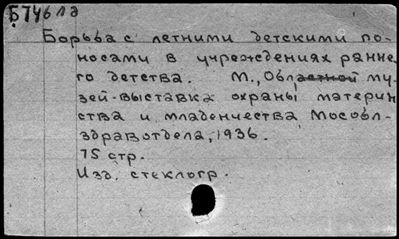 Б7461д
Борьба с летними детскими по-
носами в учреждениях ранне-
го детства. М., Областной му-
зей-выставка охраны материн
ства и младенчества Мособл-
здравотдела, 1936.
75 стр.
Изд. стеклогр.